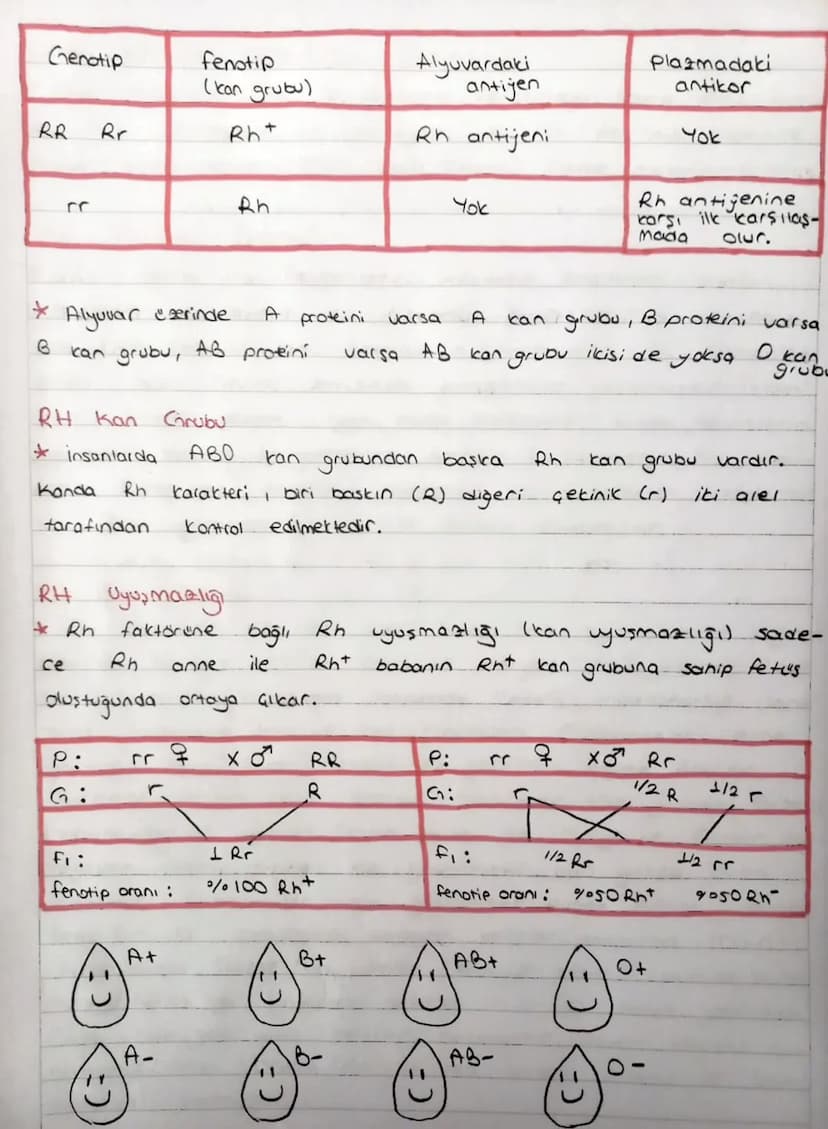 Genotip fenotip (kan grubu) Alyuvardaki antijen Plazmadaki antikor
RR Rr Rh⁺ Rh antijeni Yok
rr Rh Yok Rh antijenine karşı ilk karşılaş-mada olur.
* Alyuvar üzerinde A proteini varsa A kan grubu, B proteini varsa
B kan grubu, AB proteini varsa AB kan grubu ikisi de yoksa O kan grubu
RH Kan Grubu
* insanlarda ABO kan grubundan başka Rh kan grubu vardır.
Kanda Rh karakteri, biri baskın (R) diğeri çekinik (r) iki alel
tarafından kontrol edilmektedir.
RH Uyuşmazlığı
* Rh faktörüne bağlı Rh uyuşmazlığı (kan uyuşmazlığı) sade-
ce Rh anne ile Rh⁺ babanın Rh⁺ kan grubuna sahip fetüs
oluştuğunda ortaya çıkar.
P: rr ♀ x ♂ RR
G: r R
F₁: 1 Rr
fenotip oranı: %100 Rh⁺
P: rr ♀ x ♂ Rr
G: r 1/2 R 1/2 r
F₁: 1/2 Rr 1/2 rr
fenotip oranı: %50 Rh⁺ %50 Rh⁻
A+ B+ AB+ O+
A- B- AB- O-